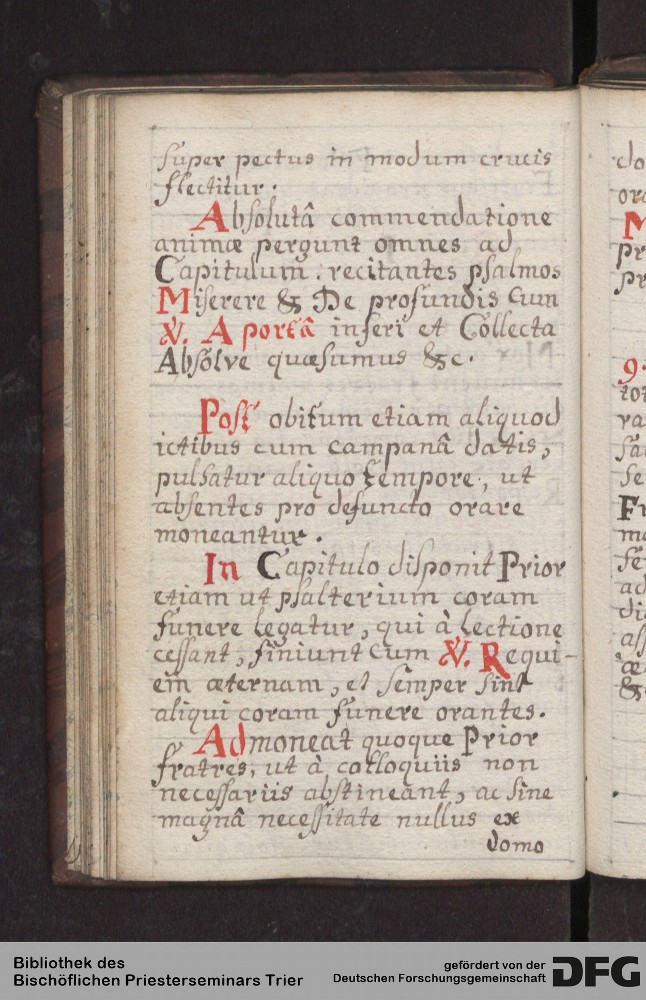 super pectus in modum crucis
flectitur.
Absolutâ commendatione
animæ pergunt omnes ad
Capitulum: recitantes psalmos
Miserere & De profundis cum
℣. A portâ inferi et Collecta
Absolve quæsumus &c.
Post obitum etiam aliquod
ictibus cum campanâ datis,
pulsatur aliquo tempore, ut
absentes pro defuncto orare
moneantur.
In Capitulo disponit Prior
etiam ut psalterium coram
funere legatur, qui à lectione
cessant, finiunt cum ℣. Requi-
em æternam, et semper sint
aliqui coram funere orantes.
Admoneat quoque Prior
fratres, ut à colloquiis non
necessariis abstineant, ac sine
magnâ necessitate nullus ex
domo
Bibliothek des
Bischöflichen Priesterseminars Trier
gefördert von der
Deutschen Forschungsgemeinschaft
DFG